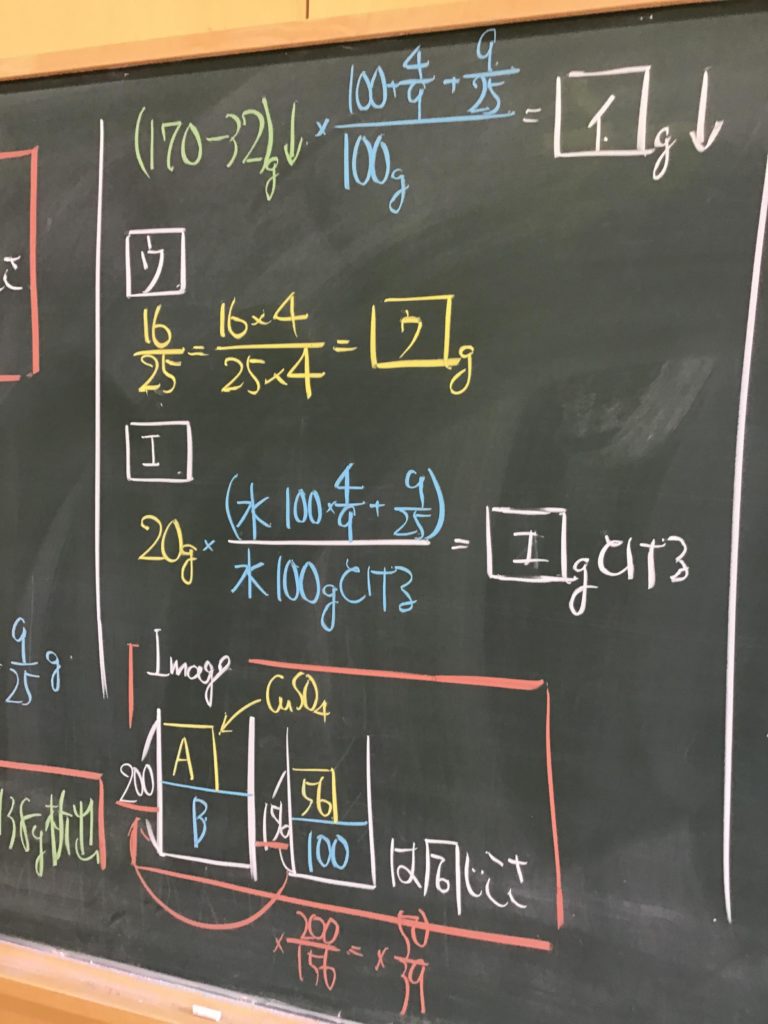 (170-32)g↓ × (100×4/9 + 9/25)/100g = イ g ↓
ウ
16/25 = 16×4/25×4 = ウ g
エ
20g × (水100×4/9 + 9/25)/水100gとける = エ gとける
9/25 g
Image
CuSO4
200 A
B
156 56
100
は同じこさ
138g析出
×200/156 = ×50/39
さ